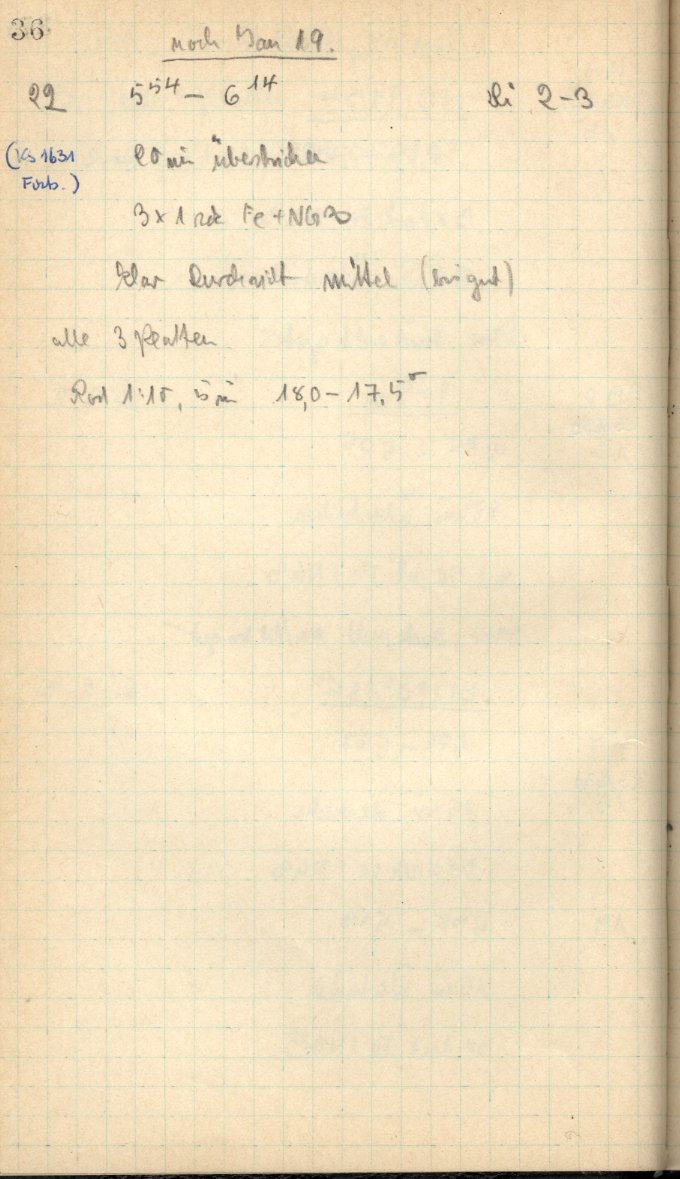 36
noch Jan 19.
22 5 54 – 6 14 Di 2–3
(KS 1631 20 min überstrichen
Farb.)
3 x 1 Fe + NG 30
klar Durchsicht mittel (bis gut)
alle 3 Platten
Rod 1:10, 5 min 18,0 – 17,5°